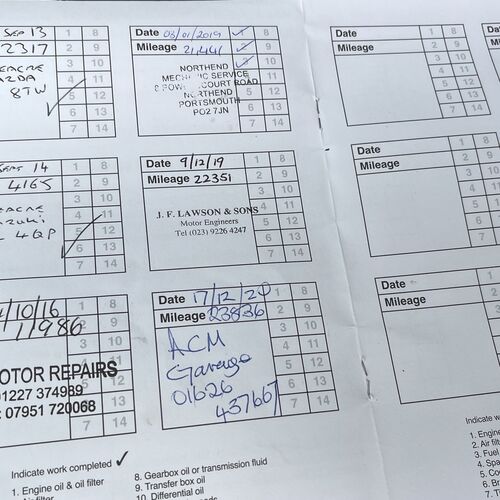 SEP 13
2317
8TW
1 8
2 9
3 10
4 11
5 12
6 13
7 14
Date 03/01/2019 1 8
Mileage 21,441 2 9
NORTHEND 3 10
MECHANIC SERVICE 4 11
COURT ROAD 5 12
NORTHEND 6 13
PORTSMOUTH 7 14
PO2 7JN
Date 1 8
Mileage 2 9
3 10
4 11
5 12
6 13
7 14
SEPT 14
4165
4QP
1 8
2 9
3 10
4 11
5 12
6 13
7 14
Date 9/12/19 1 8
Mileage 22351 2 9
3 10
J. F. LAWSON & SONS 4 11
Motor Engineers 5 12
Tel (023) 9226 4247 6 13
7 14
Date 1 8
Mileage 2 9
3 10
4 11
5 12
6 13
7 14
/10/16
11986
MOTOR REPAIRS
01227 374989
07951 720068
1 8
2 9
3 10
4 11
5 12
6 13
7 14
Date 17/12/20 1 8
Mileage 23836 2 9
ACM 3 10
Garage 4 11
01626 5 12
437667 6 13
7 14
Date 1
Mileage 2
3
4
5
6
7
Indicate work completed ✓
1. Engine oil & oil filter
8. Gearbox oil or transmission fluid
9. Transfer box oil
10. Differential oil
Indicate work
1. Engine
2. Air filt
3. Fuel
4. Spa
5. Co